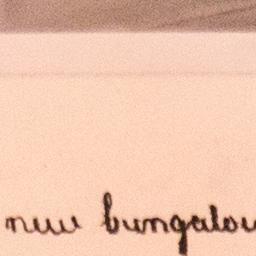 new bungalow